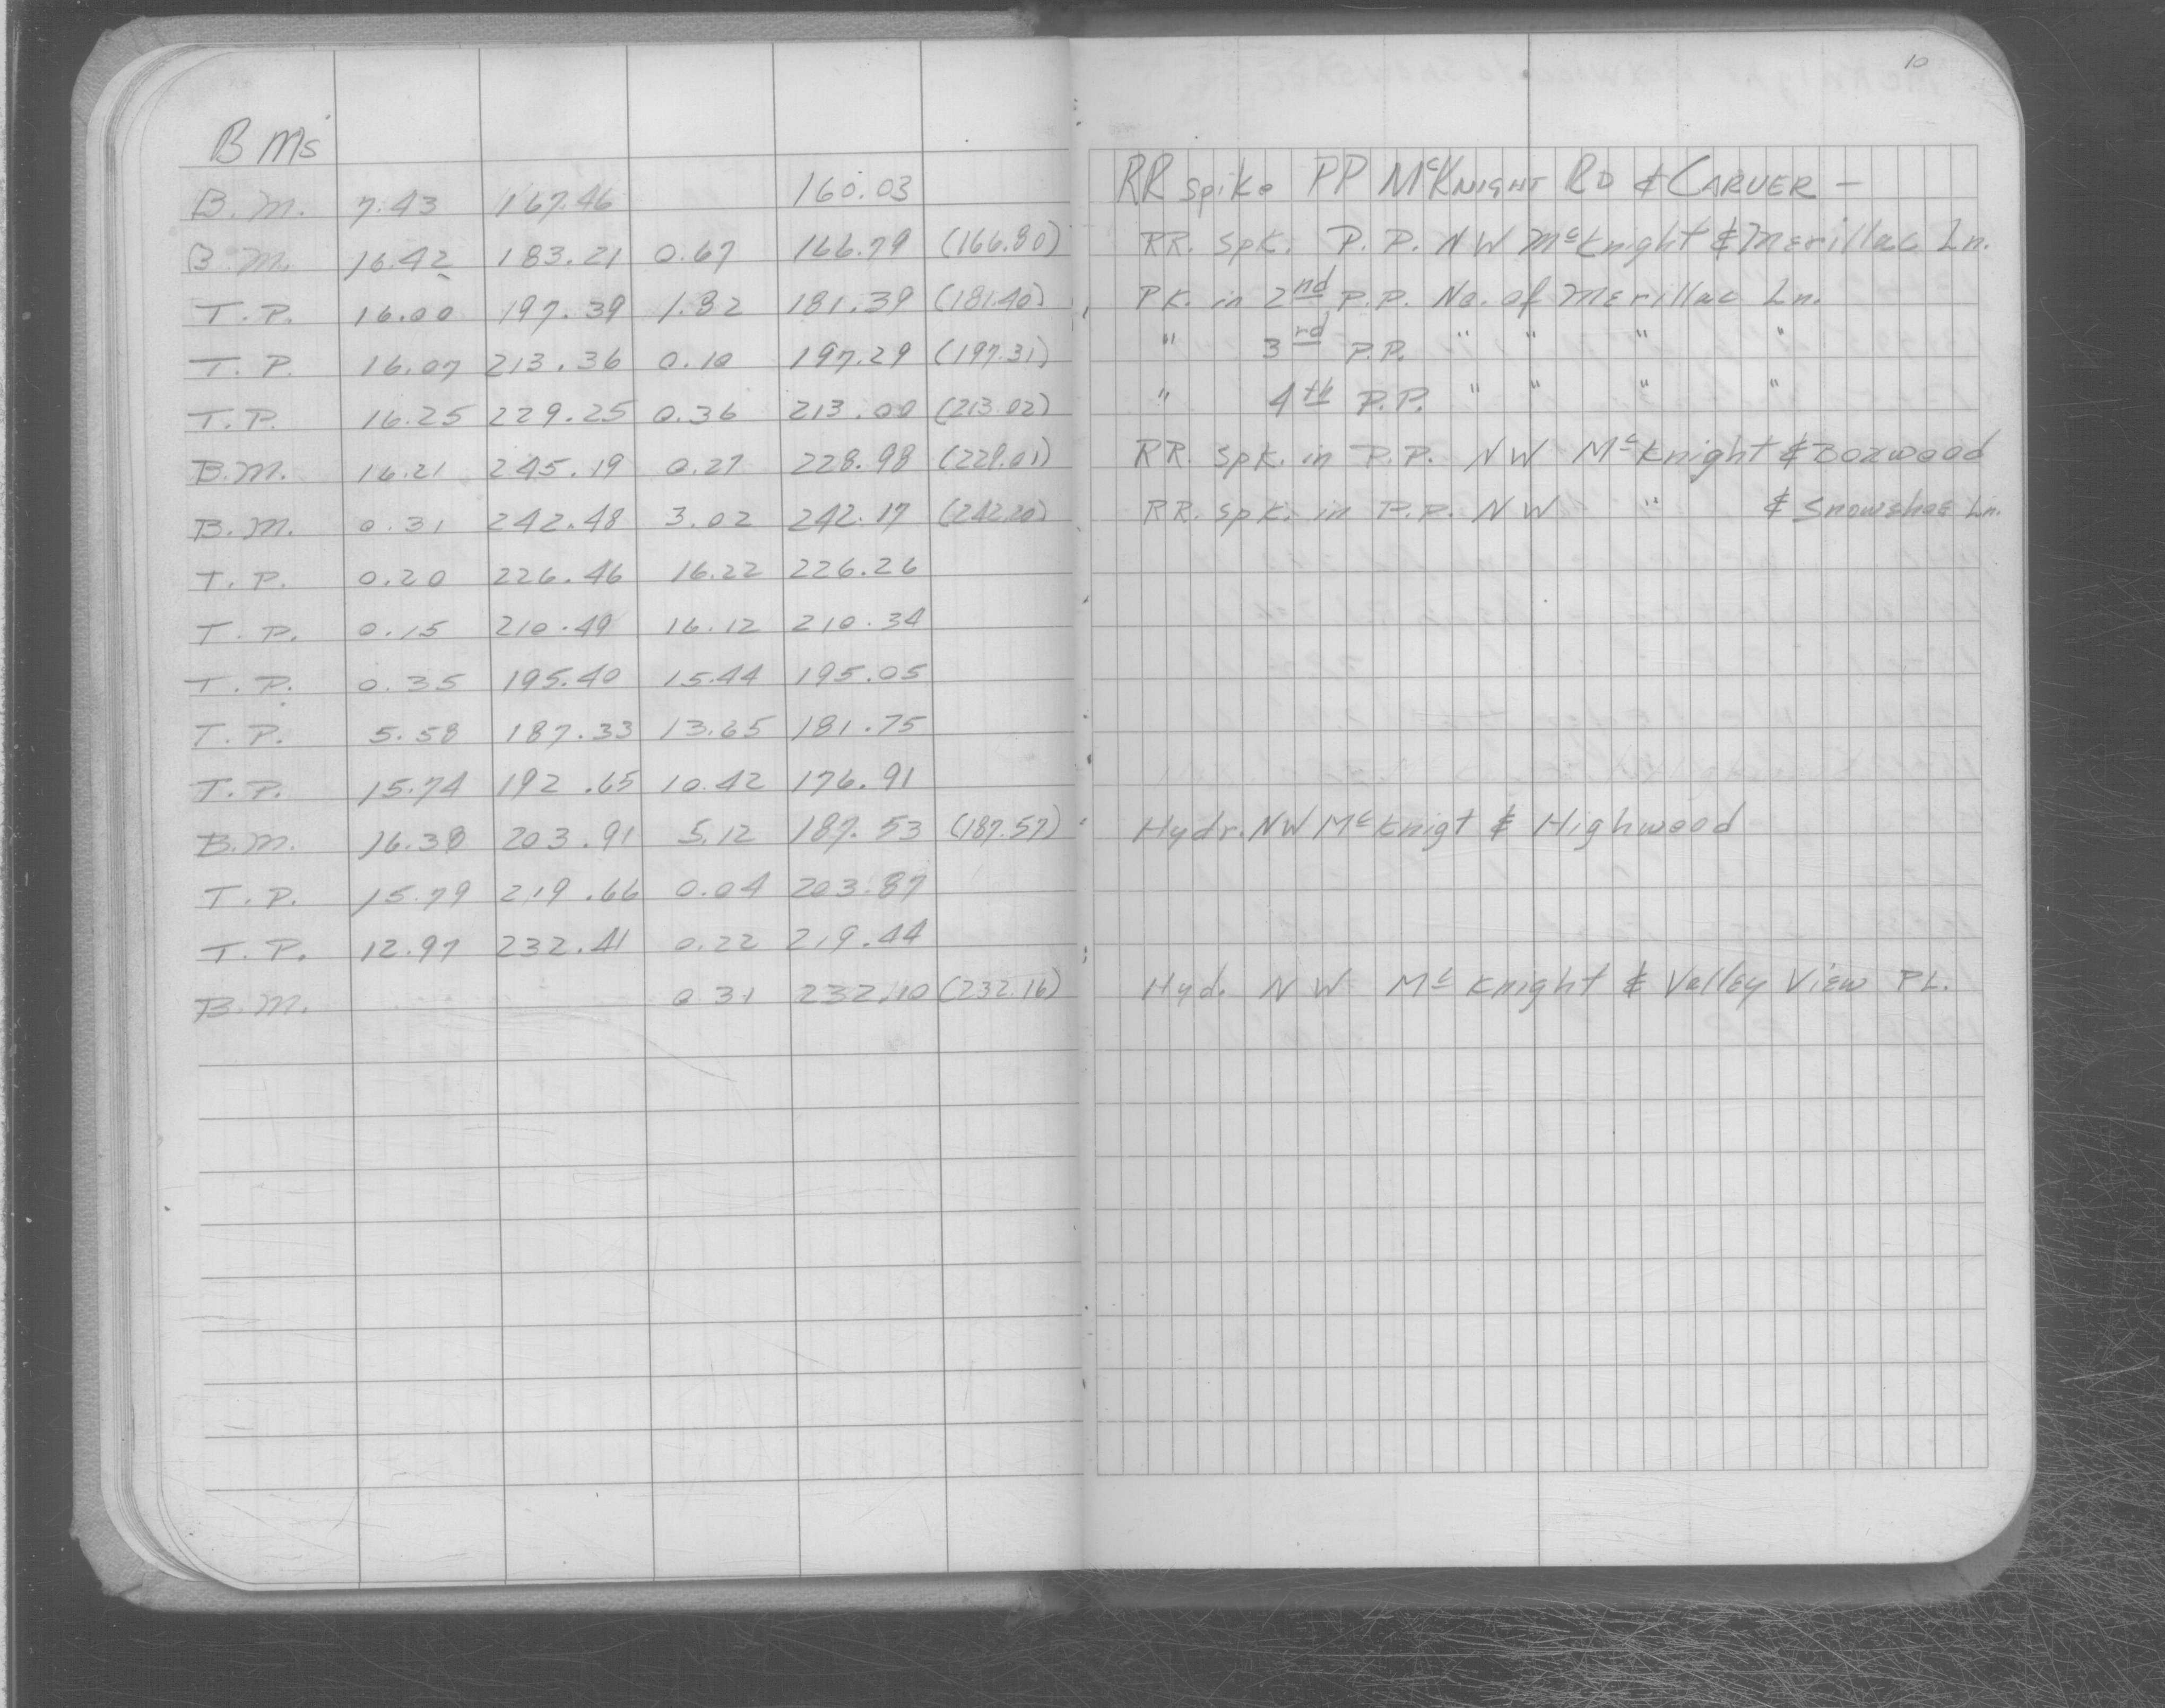 10
B Ms
B.M. 7.43 167.46 160.03 RR spike PP McKNIGHT RD & CARVER —
B.M. 16.42 183.21 0.67 166.79 (166.80) RR. Spk. P.P. NW McKnight & Merillac Ln.
T.P. 16.00 197.39 1.82 181.39 (181.40) PK. in 2nd P.P. No. of Merillac Ln.
T.P. 16.07 213.36 0.10 197.29 (197.31) " 3rd P.P. " " " "
T.P. 16.25 229.25 0.36 213.00 (213.02) " 4th P.P. " " " "
B.M. 16.21 245.19 0.27 228.98 (229.01) RR. Spk. in P.P. NW McKnight & Boxwood
B.M. 0.31 242.48 3.02 242.17 (242.20) RR. Spk. in P.P. NW " & Snowshoe Ln.
T.P. 0.20 226.46 16.22 226.26
T.P. 0.15 210.49 16.12 210.34
T.P. 0.35 195.40 15.44 195.05
T.P. 5.58 187.33 13.65 181.75
T.P. 15.74 192.65 10.42 176.91
B.M. 16.38 203.91 5.12 187.53 (187.57) Hydr. NW McKnigt & Highwood
T.P. 15.79 219.66 0.04 203.87
T.P. 12.97 232.41 0.22 219.44
B.M. 0.31 232.10 (232.16) Hyd. NW McKnight & Valley View PL.